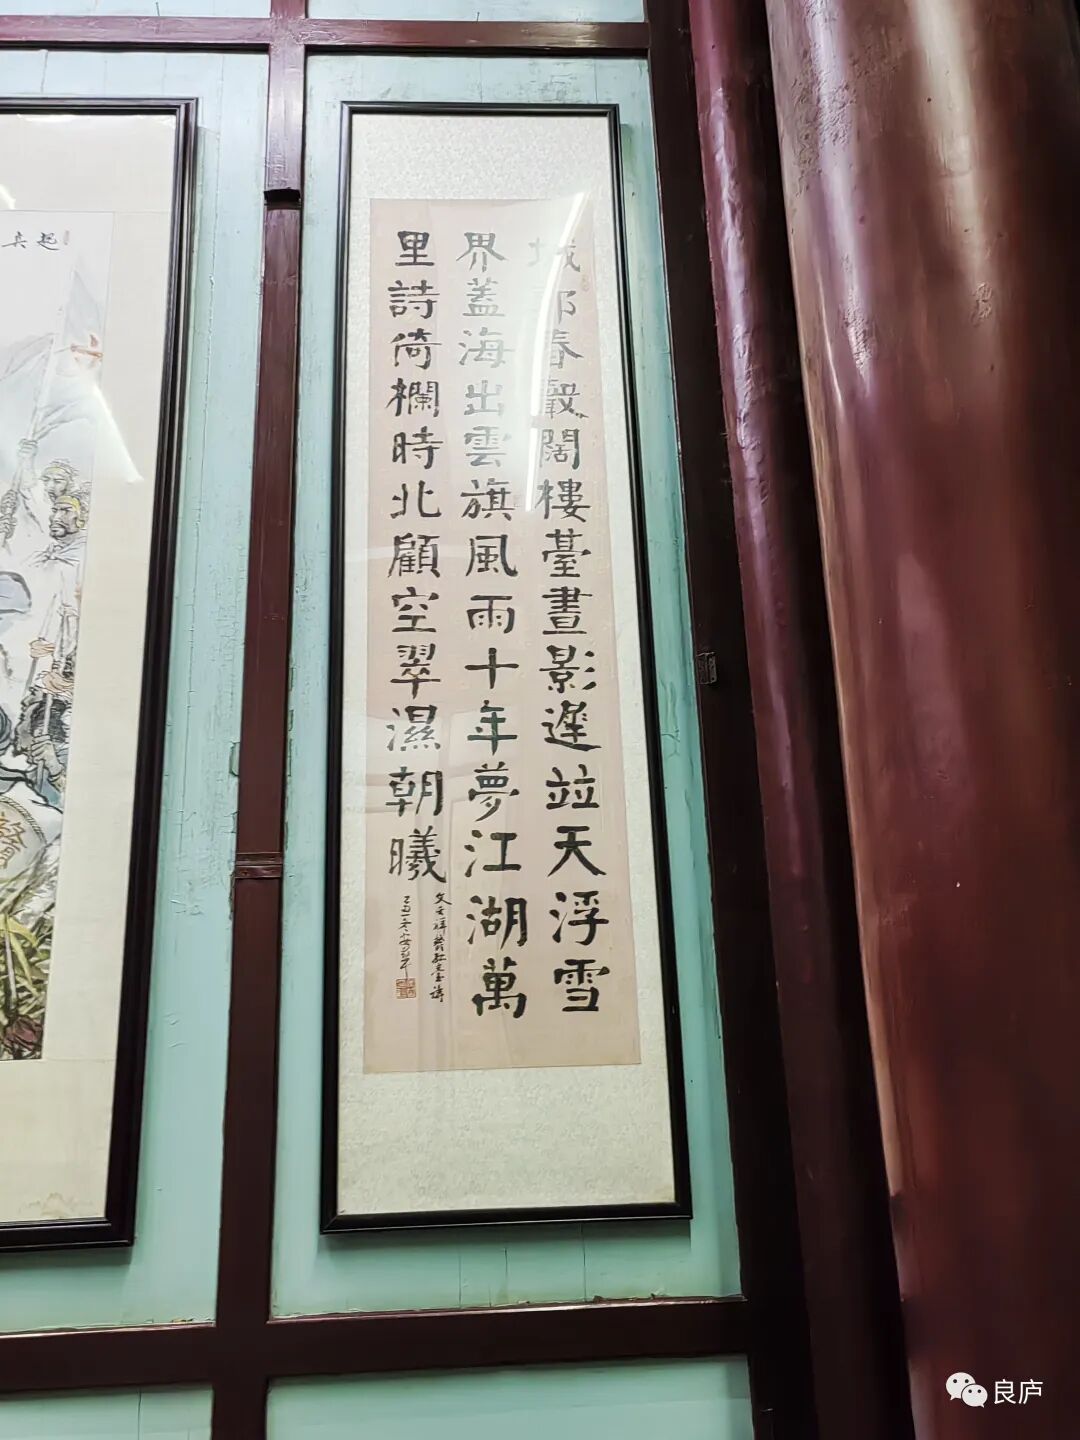 城郭春聲闊樓臺晝影遲竝天浮雪
界蓋海出雲旗風雨十年夢江湖萬
里詩倚欄時北顧空翠濕朝曦
文天祥鬱孤臺詩
起兵
良庐